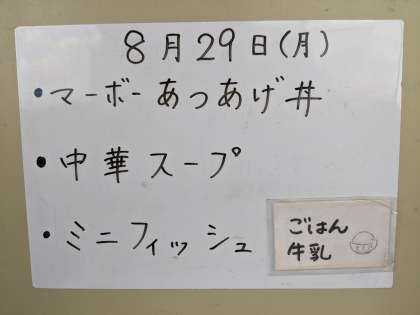 8月29日(月)
• マーボーあつあげ丼
• 中華スープ
• ミニフィッシュ
ごはん
牛乳